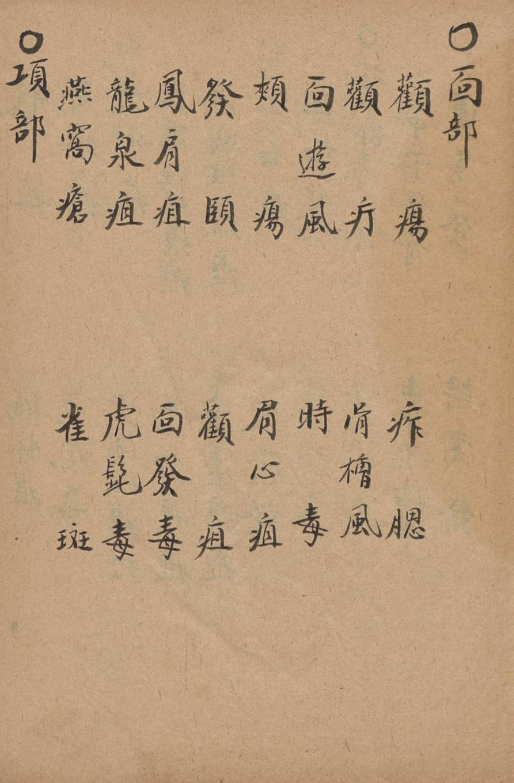 〇面部
顴瘍　痄腮
顴疔　骨槽風
面遊風　時毒
頰瘍　眉心疽
發頤　顴疽
鳳眉疽　面發毒
龍泉疽　虎髭毒
燕窩瘡　雀斑
〇項部